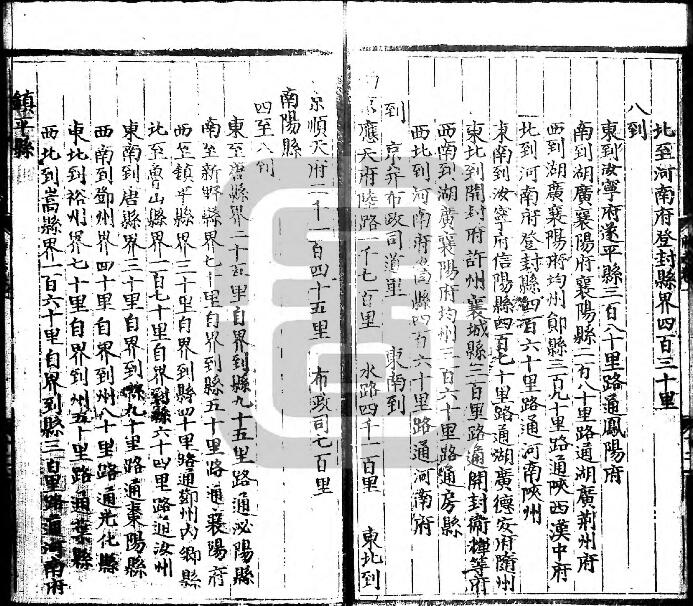 北至河南府登封縣界四百三十里
八到
東到汝寧府遂平縣三百八十里路通鳳陽府
南到湖廣襄陽府襄陽縣二百八十里路通湖廣荊州府
西到湖廣襄陽府均州鄖縣三百九十里路通陝西漢中府
北到河南府登封縣四百六十里路通河南陝州
東南到汝寧府信陽縣四百七十里路通湖廣德安府隨州
東北到開封府許州襄城縣三百里路通開封衛輝等府
西南到湖廣襄陽府均州三百六十里路通房縣
西北到河南府嵩縣四百六十里路通河南府
到 京并布政司道里 東南到
應天府陸路一千七百里 水路四千一百里 東北到
京順天府二千一百四十五里 布政司七百里
南陽縣
四至八到
東至唐縣界二十五里自界到縣九十五里路通泌陽縣
南至新野縣界七十里自界到縣五十里路通襄陽府
西至鎮平縣界三十里自界到縣四十里路通鄧州內鄉縣
北至魯山縣界一百七十里自界到縣六十里路通汝州
東南到唐縣界三十里自界到縣九十里路通棗陽縣
西南到鄧州界四十里自界到州八十里路通光化縣
東北到裕州界七十里自界到州五十里路通葉縣
西北到嵩縣界一百六十里自界到縣三百里路通河南府
鎮平縣